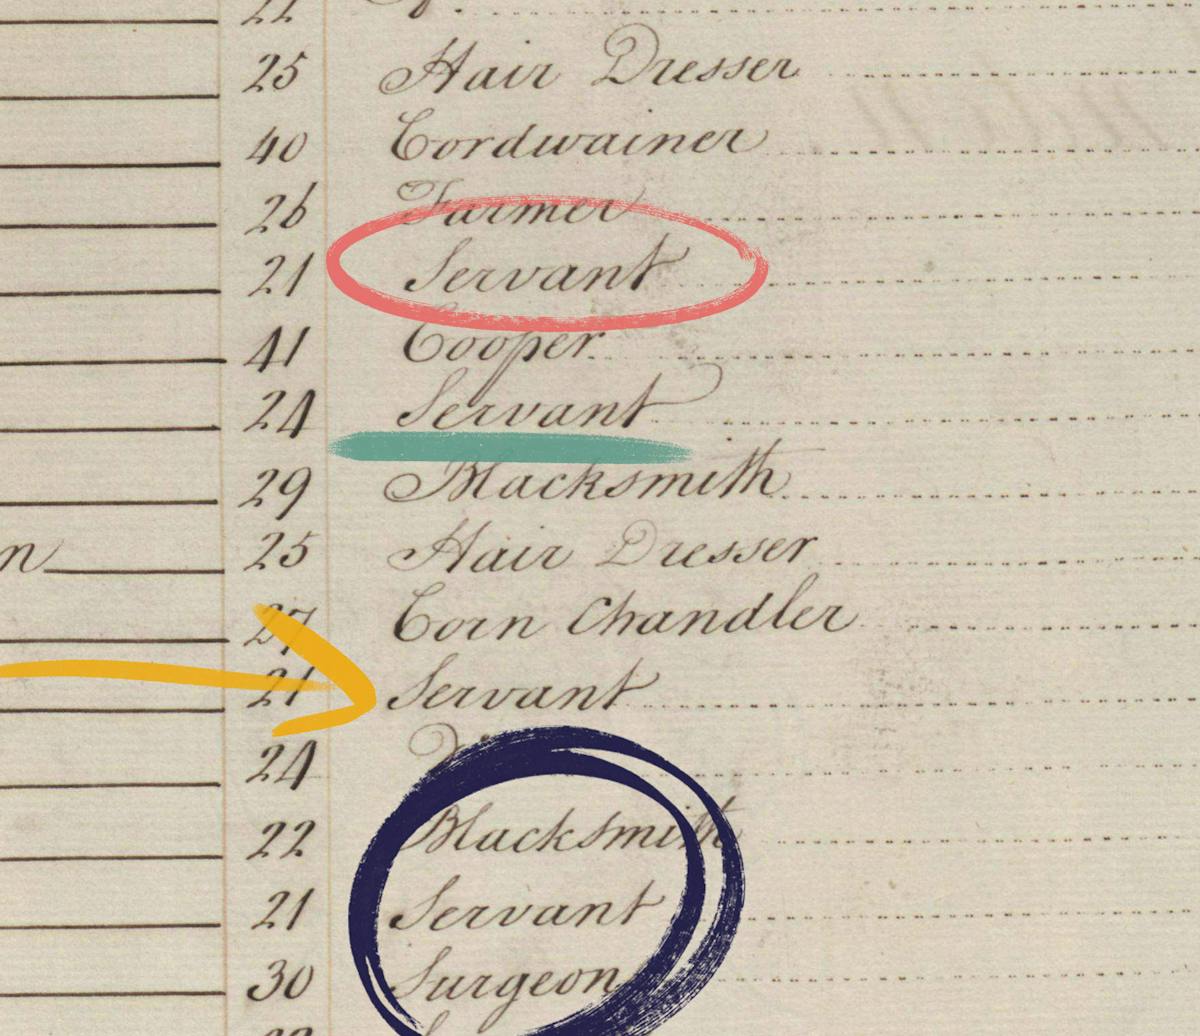 25 Hair Dresser
40 Cordwainer
26 Farmer
21 Servant
41 Cooper
24 Servant
29 Blacksmith
n 25 Hair Dresser
27 Corn Chandler
21 Servant
24
22 Blacksmith
21 Servant
30 Surgeon